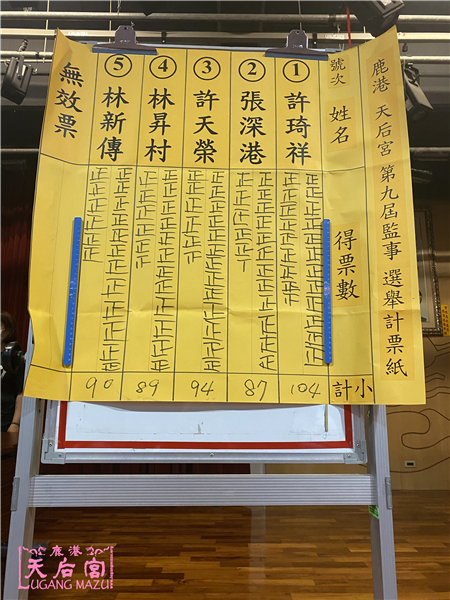 鹿港 天后宮 第九屆監事 選舉計票紙
號次 姓名 得票數 小計
① 許琦祥 104
② 張深港 87
③ 許天榮 94
④ 林昇村 89
⑤ 林新傳 90
無效票
鹿港
天后宮
LUGANG MAZU